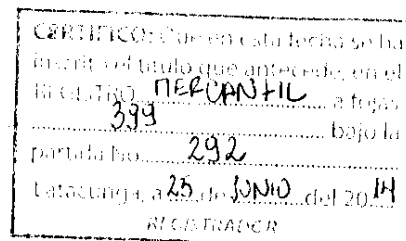 CERTIFICO: Que en esta fecha se ha
inscrito el titulo que antecede, en el
REGISTRO MERCANTIL a fojas
399 bajo la
partida No. 292
Latacunga, a 25 de JUNIO del 2014
REGISTRADOR